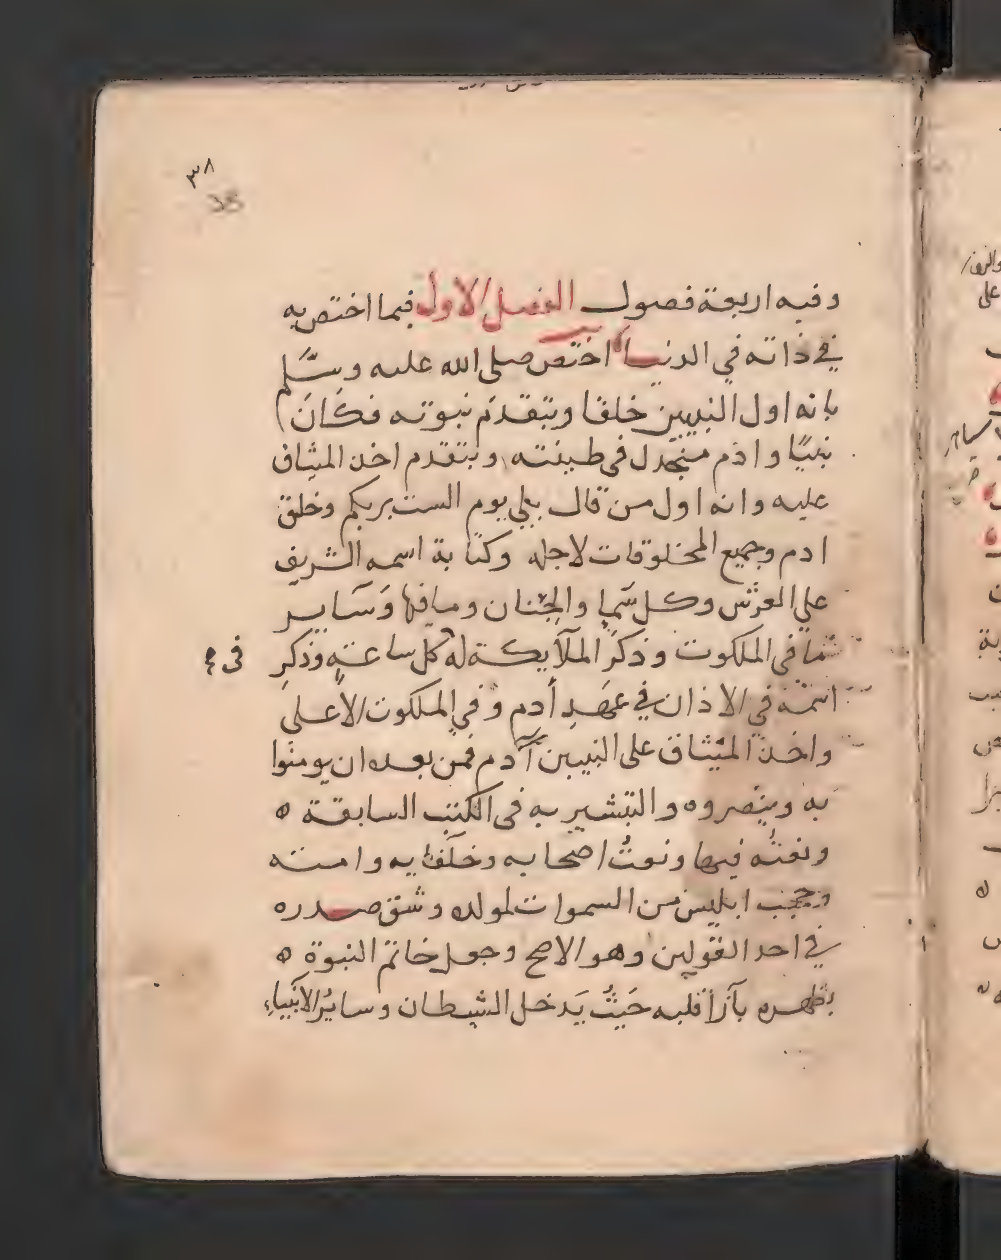 ٣٨
38
وفيه اربعة فصول الفصل الاول فيما اختص به
في ذاته في الدنيا اختص صلى الله عليه وسَّلم
بانه اول النبيين خلقا وبتقدم نبوته فكانَ
نبيًا وادم منجدل في طينته وبتقدم اخذ الميثاق
عليه وانه اول من قال بلي يوم الست بربكم وخلق
ادم وجميع المخلوقات لاجله وكتابة اسمه الشريف
علي العرش وكل سَمإ والجنان وما فيها وَسَاير
ما في الملكوت وذكر الملآيكة له كل ساعةٍ وذكرِ
اسمه في الاذان في عهدِ أدم وفي الملكوت الاعلى
واخذ الميثاق على النبيين آدم فمن بعده ان يومنوا
به وينصروه والتبشير به في الكتب السابقة ه
ونعته فيها ونعتُ اصحابه وخلفائه وامته
وحجب ابليس من السموات لمولده وشق صدره
في احد القولين وهو الاصح وجعل خاتم النبوة ه
بظهره بآزأ قلبه حَيثُ يَدخل الشيطان وسائرُ الانبياءِ